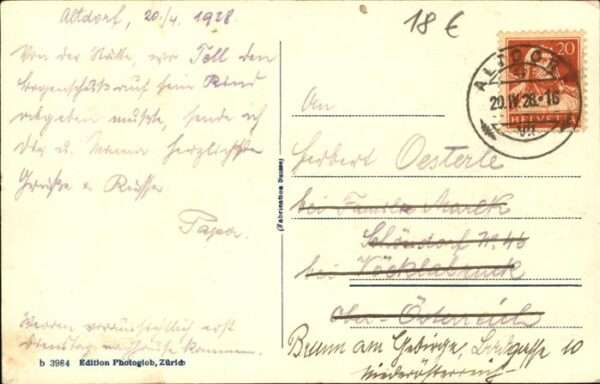 Altdorf, 20./4. 1928
Von der Stätte, wo Tell den
Bogenschuß auf sein Kind
abgeben mußte, sende ich
Dir u. Mama herzlichste
Grüße u. Küsse
Papa.
Werden voraussichtlich erst
Dienstag nachhause kommen.
b 3984 Edition Photoglob, Zürich
(Fabrication Suisse)
18 €
20
HELVETIA
ALTDORF
20.IV.28-18
An
Herbert Oesterle
bei Familie
Schöndorf No. 46
bei Vöcklabruck
Ober-Österreich
Brunn am Gebirge, 10
Niederösterreich